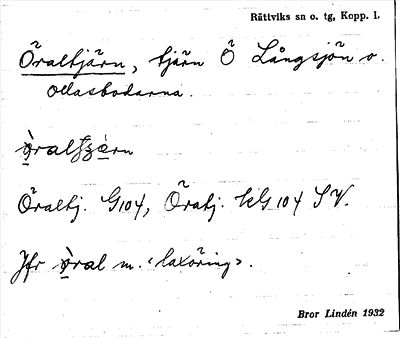 Rättviks sn o. tg, Kopp. l.
Öraltjärn, tjärn Ö Långsjön o.
Ollasbodarna.
Öraltj. G104, Öratj. kG 104 SV.
Jfr öral m. ‹laxöring›.
Bror Lindén 1932